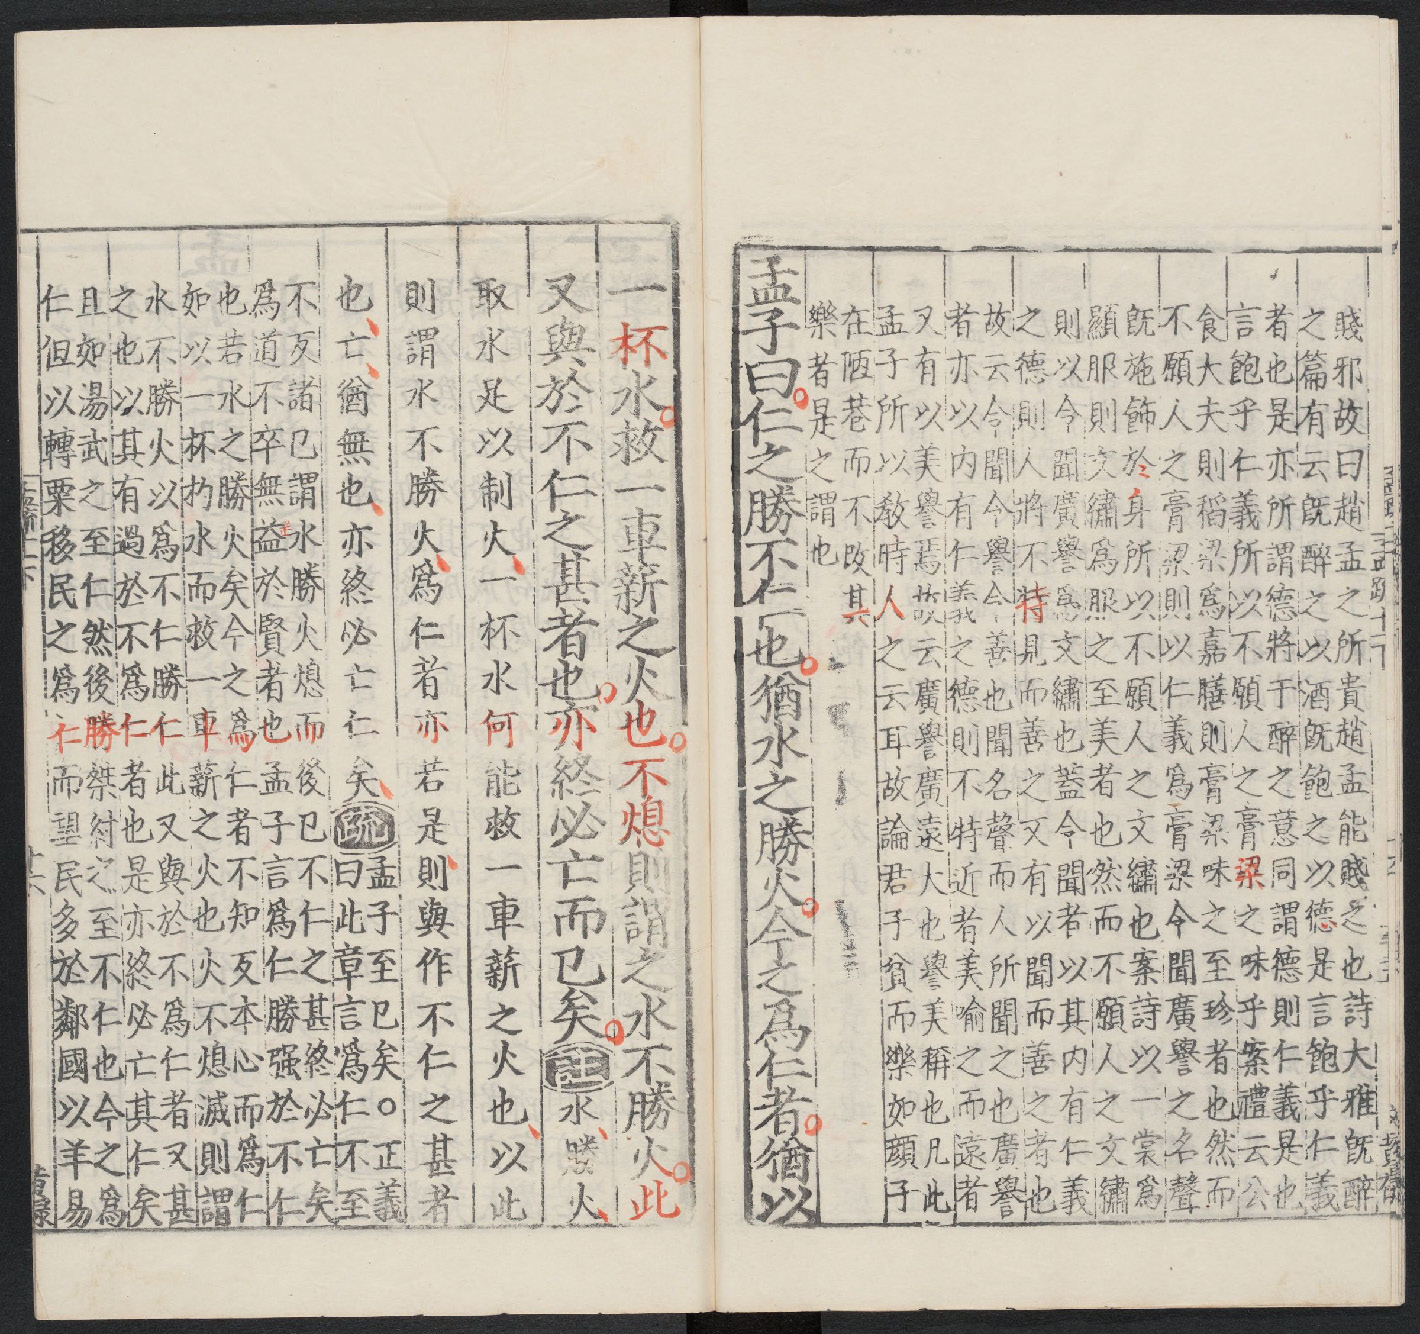 賤邪故曰趙孟之所貴趙孟能賤之也詩大雅旣醉
之篇有云旣醉之以酒旣飽之以德是言飽乎仁義
者也是亦所謂德將于醉之意同謂德則仁義是也
言飽乎仁義所以不願人之膏梁之味乎案禮云公
食大夫則稻梁爲嘉膳則膏梁味之至珍者也然而
不願人之膏梁則以仁義爲膏梁今聞廣譽之名聲
旣施飾於身所以不願人之文繡也案詩以一裳爲
顯服則文繡爲服之至美者也然而不願人之文繡
則以今聞廣譽爲文繡也蓋今聞者以其内有仁義
之德則人將不特見而善之又有以聞而善之者也
故云今聞今譽今善也聞名聲而人所聞之也廣譽
者亦以内有仁義之德則不特近者美喻之而遠者
又有以美譽焉故云廣譽廣遠大也譽美稱也凡此
孟子所以敎時人之云耳故論君子貧而樂如顏子
在陋巷而不改其
樂者是之謂也
孟子曰仁之勝不仁也猶水之勝火今之爲仁者猶以
一杯水救一車薪之火也不熄則謂之水不勝火此
又與於不仁之甚者也亦終必亡而已矣注水勝火
取水足以制火一杯水何能救一車薪之火也以此
則謂水不勝火爲仁者亦若是則與作不仁之甚者
也亡猶無也亦終必亡仁矣疏
孟子至已矣○正義
曰此章言爲仁不至
不反諸己謂水勝火熄而後已不仁之甚終必亡矣
爲道不卒無益於賢者也孟子言爲仁勝强於不仁
也若水之勝火矣今之爲仁者不知反本心而爲仁
如以一杯杓水而救一車薪之火也火不熄滅則謂
水不勝火以爲不仁勝仁此又與於不爲仁者又甚
之也以其有過於不爲仁者也是亦終必亡其仁矣
且如湯武之至仁然後勝桀紂之至不仁也今之爲
仁但以轉粟移民之爲仁而望民多於鄰國以羊易